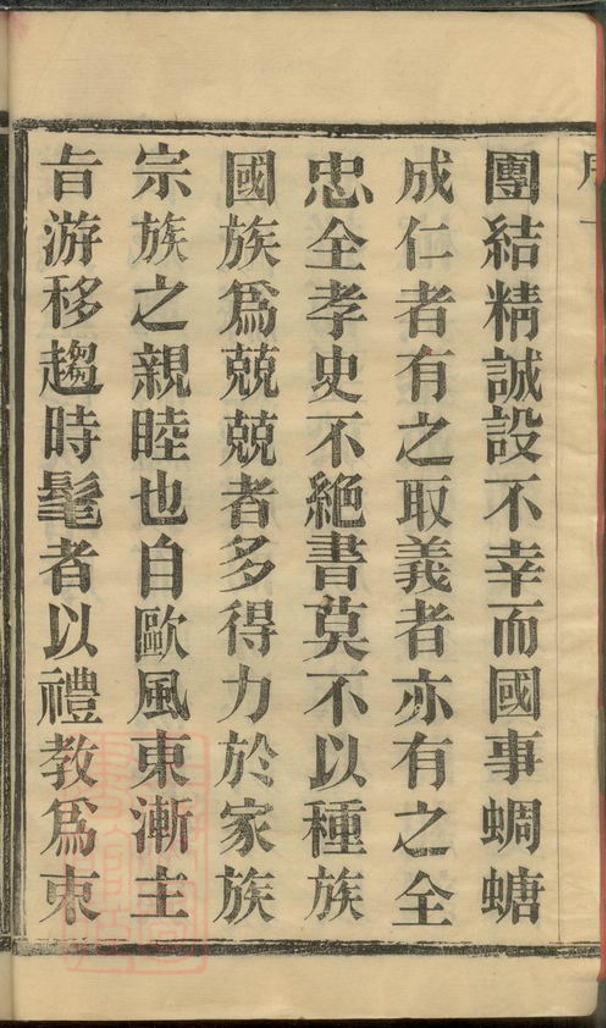 團結精誠設不幸而國事蜩螗
成仁者有之取義者亦有之全
忠全孝史不絕書莫不以種族
國族爲兢兢者多得力於家族
宗族之親睦也自歐風東漸主
旨游移趨時髦者以禮教爲束